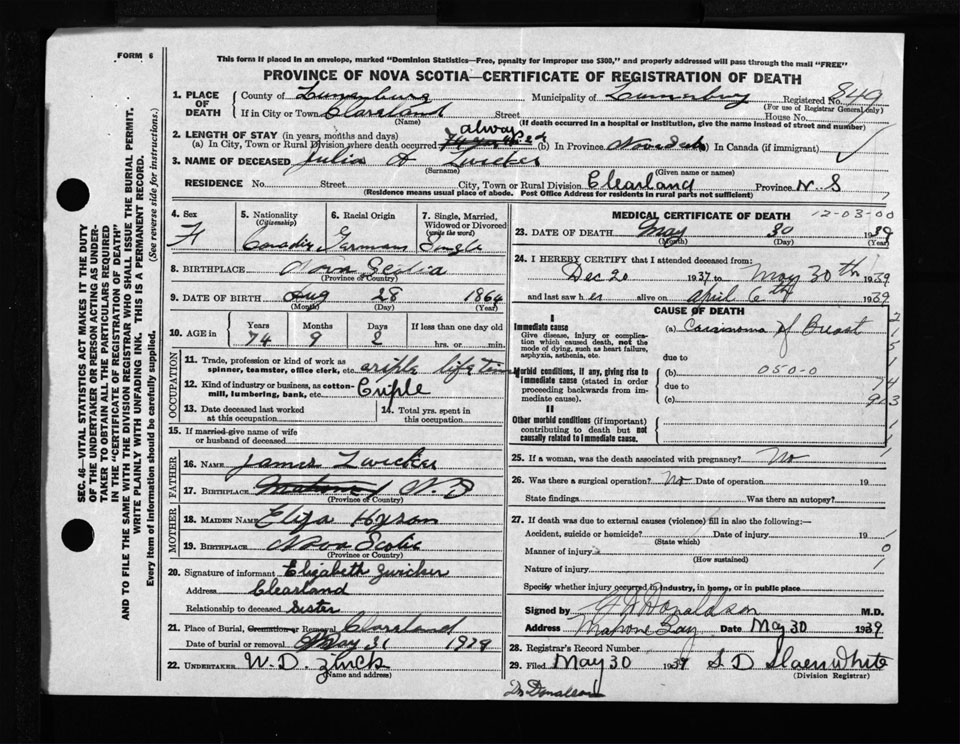 FORM 6
This form if placed in an envelope, marked "Dominion Statistics—Free, penalty for improper use $300," and properly addressed will pass through the mail "FREE"
PROVINCE OF NOVA SCOTIA—CERTIFICATE OF REGISTRATION OF DEATH
SEC. 46—VITAL STATISTICS ACT MAKES IT THE DUTY
OF THE UNDERTAKER OR PERSON ACTING AS UNDER-
TAKER TO OBTAIN ALL THE PARTICULARS REQUIRED
IN THE "CERTIFICATE OF REGISTRATION OF DEATH"
AND TO FILE THE SAME WITH THE DIVISION REGISTRAR WHO SHALL ISSUE THE BURIAL PERMIT.
WRITE PLAINLY WITH UNFADING INK. THIS IS A PERMANENT RECORD.
Every item of information should be carefully supplied. (See reverse side for instructions.)
1. PLACE OF DEATH County of Lunenburg Municipality of Lunenburg Registered No. 849
(For use of Registrar General only)
If in City or Town Clearland Street House No.
(Name) (If death occurred in a hospital or institution, give the name instead of street and number)
2. LENGTH OF STAY (in years, months and days) always
(a) In City, Town or Rural Division where death occurred (b) In Province Nova Scotia In Canada (if immigrant)
3. NAME OF DECEASED Julia A Zwicker
(Surname) (Given name or names)
RESIDENCE No. Street City, Town or Rural Division Clearland Province N.S
(Residence means usual place of abode. Post Office Address for residents in rural parts not sufficient)
4. Sex F
5. Nationality (Citizenship) Canadian
6. Racial Origin German
7. Single, Married, Widowed or Divorced (write the word) Single
8. BIRTHPLACE Nova Scotia
(Province or Country)
9. DATE OF BIRTH Aug 28 1864
(Month) (Day) (Year)
10. AGE in Years Months Days If less than one day old
74 9 2 hrs. or min.
OCCUPATION
11. Trade, profession or kind of work as
spinner, teamster, office clerk, etc. criple life time
12. Kind of industry or business, as cotton-
mill, lumbering, bank, etc. Criple
13. Date deceased last worked at this occupation
14. Total yrs. spent in this occupation
15. If married give name of wife
or husband of deceased
FATHER
16. NAME James Zwicker
17. BIRTHPLACE Mahone NS
(Province or Country)
MOTHER
18. MAIDEN NAME Eliza Hyson
19. BIRTHPLACE Nova Scotia
(Province or Country)
20. Signature of informant Elizabeth Zwicker
Address Clearland
Relationship to deceased Sister
21. Place of Burial, Cremation or Removal Clearland
Date of burial or removal May 31 1939
22. UNDERTAKER W. D. Zinck
(Name and address)
MEDICAL CERTIFICATE OF DEATH
12-03-00
23. DATE OF DEATH May 30 1939
(Month) (Day) (Year)
24. I HEREBY CERTIFY that I attended deceased from:
Dec 20 1937 to May 30th 1939
and last saw her alive on April 6th 1939
CAUSE OF DEATH
I
Immediate cause (a) Carcinoma of Breast
Give disease, injury or complication which caused death, not the mode of dying, such as heart failure, asphyxia, asthenia, etc.
due to
Morbid conditions, if any, giving rise to immediate cause (stated in order proceeding backwards from immediate cause). (b) 050-0
due to
(c)
II
Other morbid conditions (if important) contributing to death but not causally related to immediate cause.
25. If a woman, was the death associated with pregnancy? No
26. Was there a surgical operation? No Date of operation 19
State findings Was there an autopsy?
27. If death was due to external causes (violence) fill in also the following:—
Accident, suicide or homicide? Date of injury 19
(State which)
Manner of injury
(How sustained)
Nature of injury
Specify whether injury occurred in industry, in home, or in public place
Signed by Donaldson M.D.
Address Mahone Bay Date May 30 1939
28. Registrar's Record Number
29. Filed May 30 1939 S D Slaenwhite
(Division Registrar)
Dr Donalson